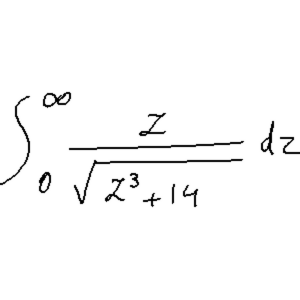 ∫₀^∞ z/√(z³+14) dz